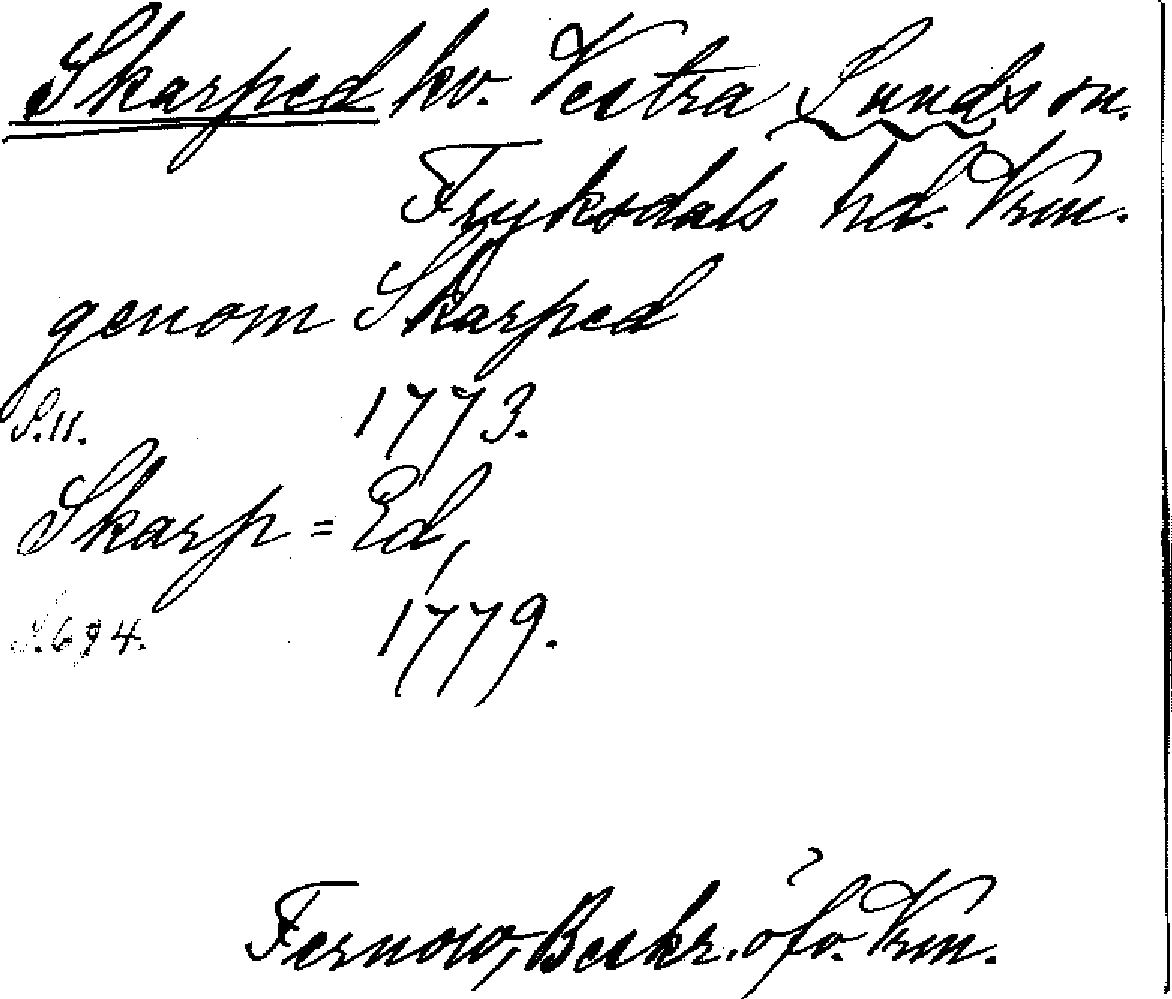 Skarped kv. Vestra Sunds sn.
Fryksdals hd. Vrm.
genom Skarped
S.11. 1773.
Skarp = Ed,
S.694. 1779.
Fernow, Beskr. öfv. Vrm.